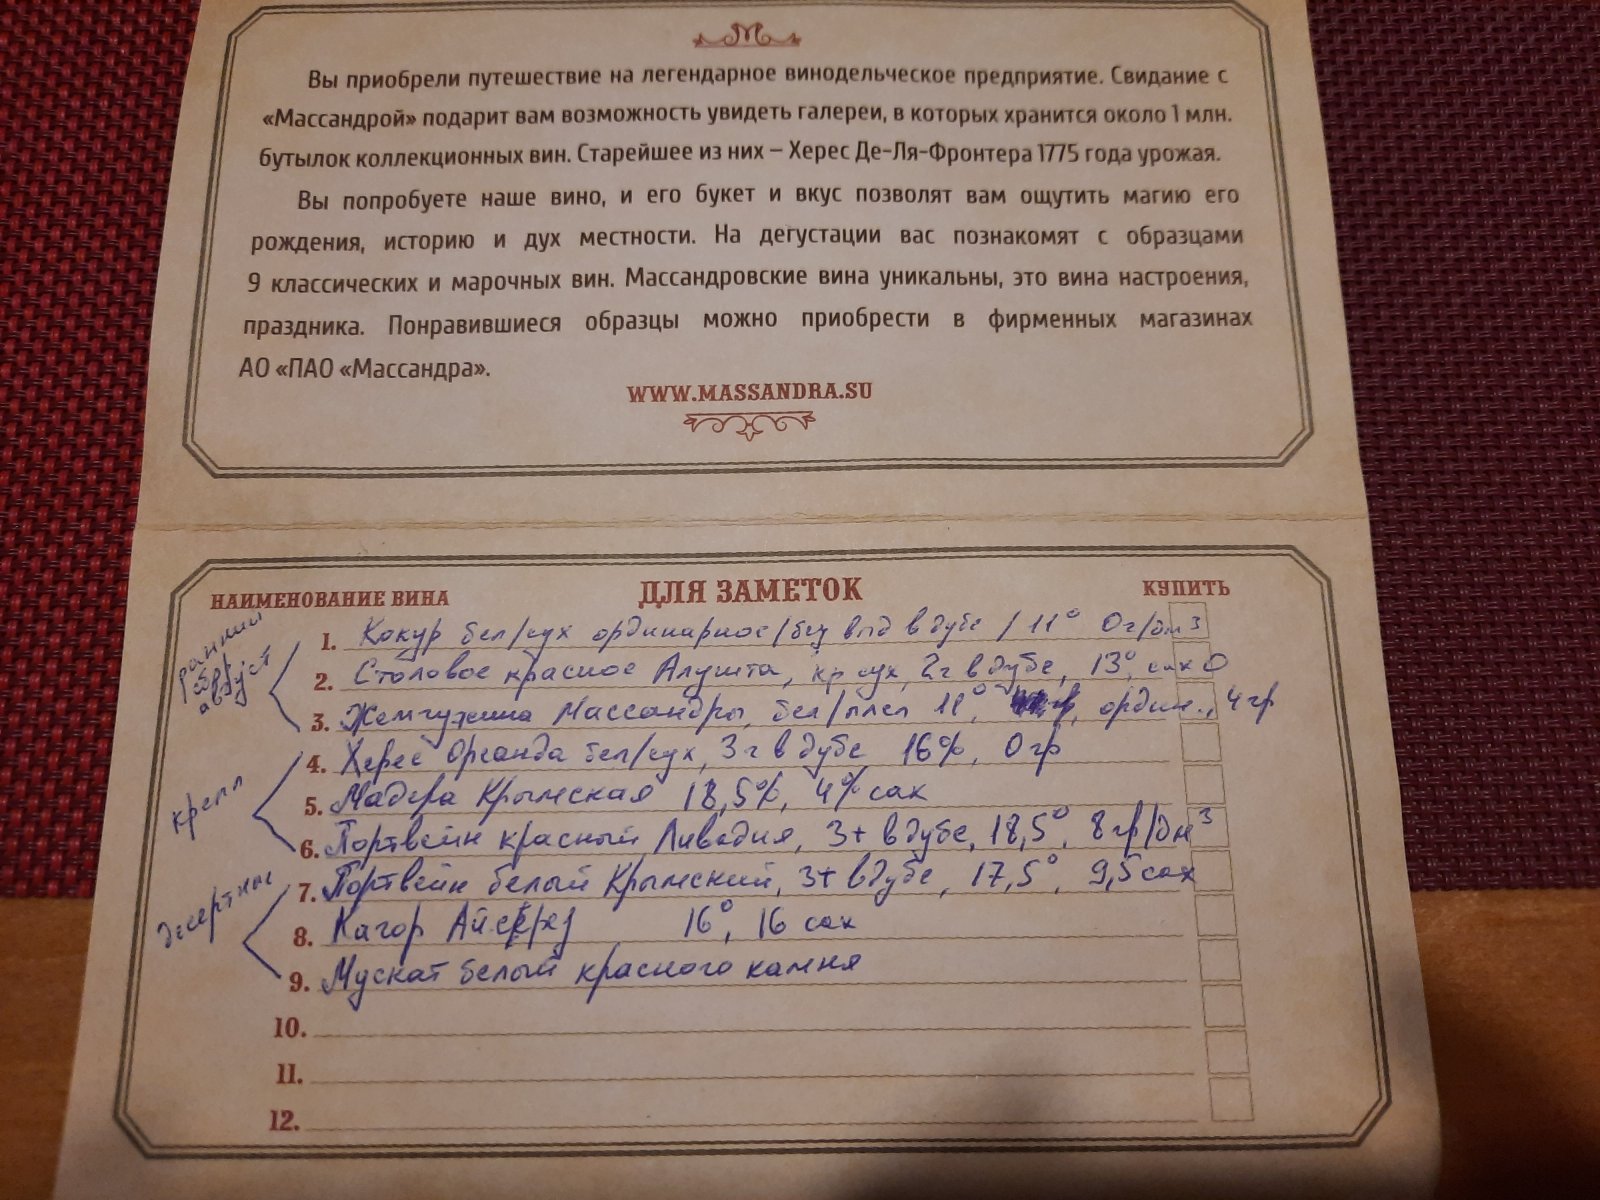 Вы приобрели путешествие на легендарное винодельческое предприятие. Свидание с
«Массандрой» подарит вам возможность увидеть галереи, в которых хранится около 1 млн.
бутылок коллекционных вин. Старейшее из них – Херес Де-Ля-Фронтера 1775 года урожая.
Вы попробуете наше вино, и его букет и вкус позволят вам ощутить магию его
рождения, историю и дух местности. На дегустации вас познакомят с образцами
9 классических и марочных вин. Массандровские вина уникальны, это вина настроения,
праздника. Понравившиеся образцы можно приобрести в фирменных магазинах
АО «ПАО «Массандра».
WWW.MASSANDRA.SU
НАИМЕНОВАНИЕ ВИНА ДЛЯ ЗАМЕТОК КУПИТЬ
ранний
сбор
август
1. Кокур бел/сух ординарное/без выд в дубе / 11° 0г/дм³
2. Столовое красное Алушта, кр сух, 2г в дубе, 13°, сах 0
3. Жемчужина Массандры, бел/ 11°, ордин., 4 гр
крепл
4. Херес Ореанда бел/сух, 3г в дубе 16%, 0 гр
5. Мадера Крымская 18,5%, 4% сах
6. Портвейн красный Ливадия, 3+ в дубе, 18,5°, 8 гр/дм³
десертные
7. Портвейн белый Крымский, 3+ в дубе, 17,5°, 9,5 сах
8. Кагор 16°, 16 сах
9. Мускат белый красного камня
10.
11.
12.